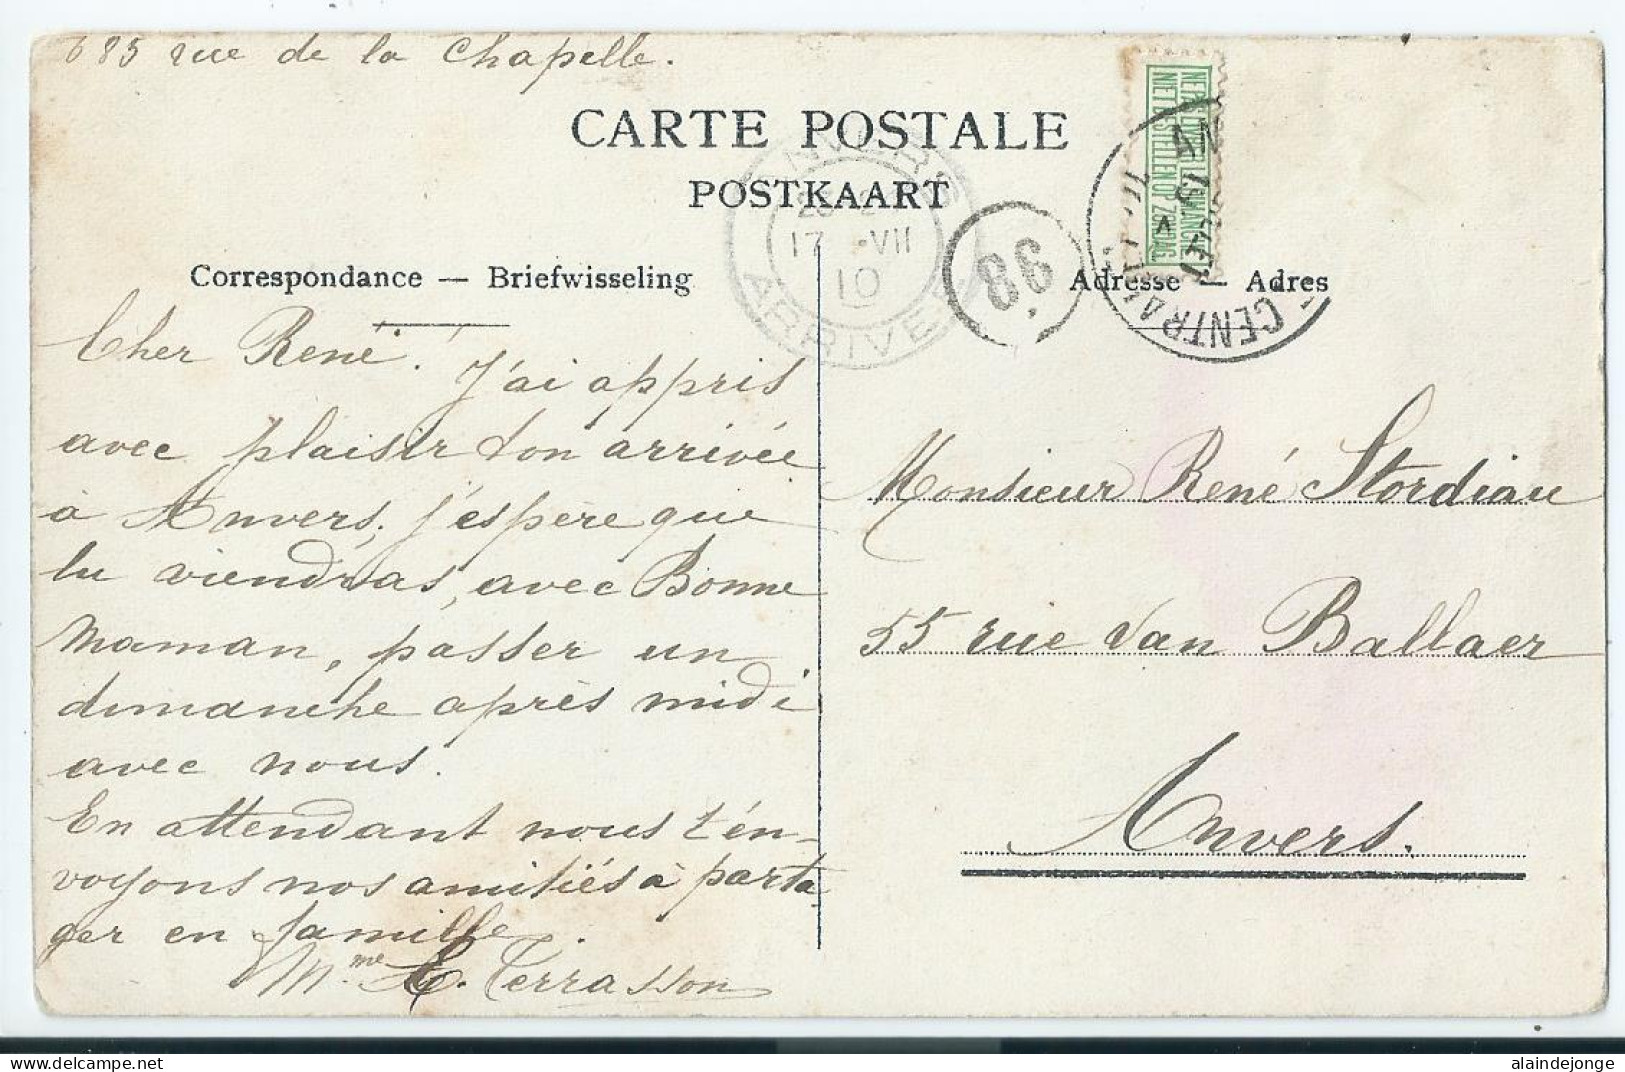 685 rue de la Chapelle.
CARTE POSTALE
POSTKAART
Correspondance — Briefwisseling
Adresse — Adres
NE PAS LIVRER LE DIMANCHE
NIET BESTELLEN OP ZONDAG
ANVERS
17 VII
10
ARRIVÉE
86
CENTRAL
Cher René! J'ai appris
avec plaisir ton arrivée
à Anvers, j'espère que
tu viendras, avec Bonne
Maman, passer un
dimanche après midi
avec nous.
En attendant nous t'én-
voyons nos amitiés à parta-
ger en famille.
Mme A. Terrasson
Monsieur René Stordiau
55 rue Van Ballaer
Anvers.
alaindejonge - delcampe.net